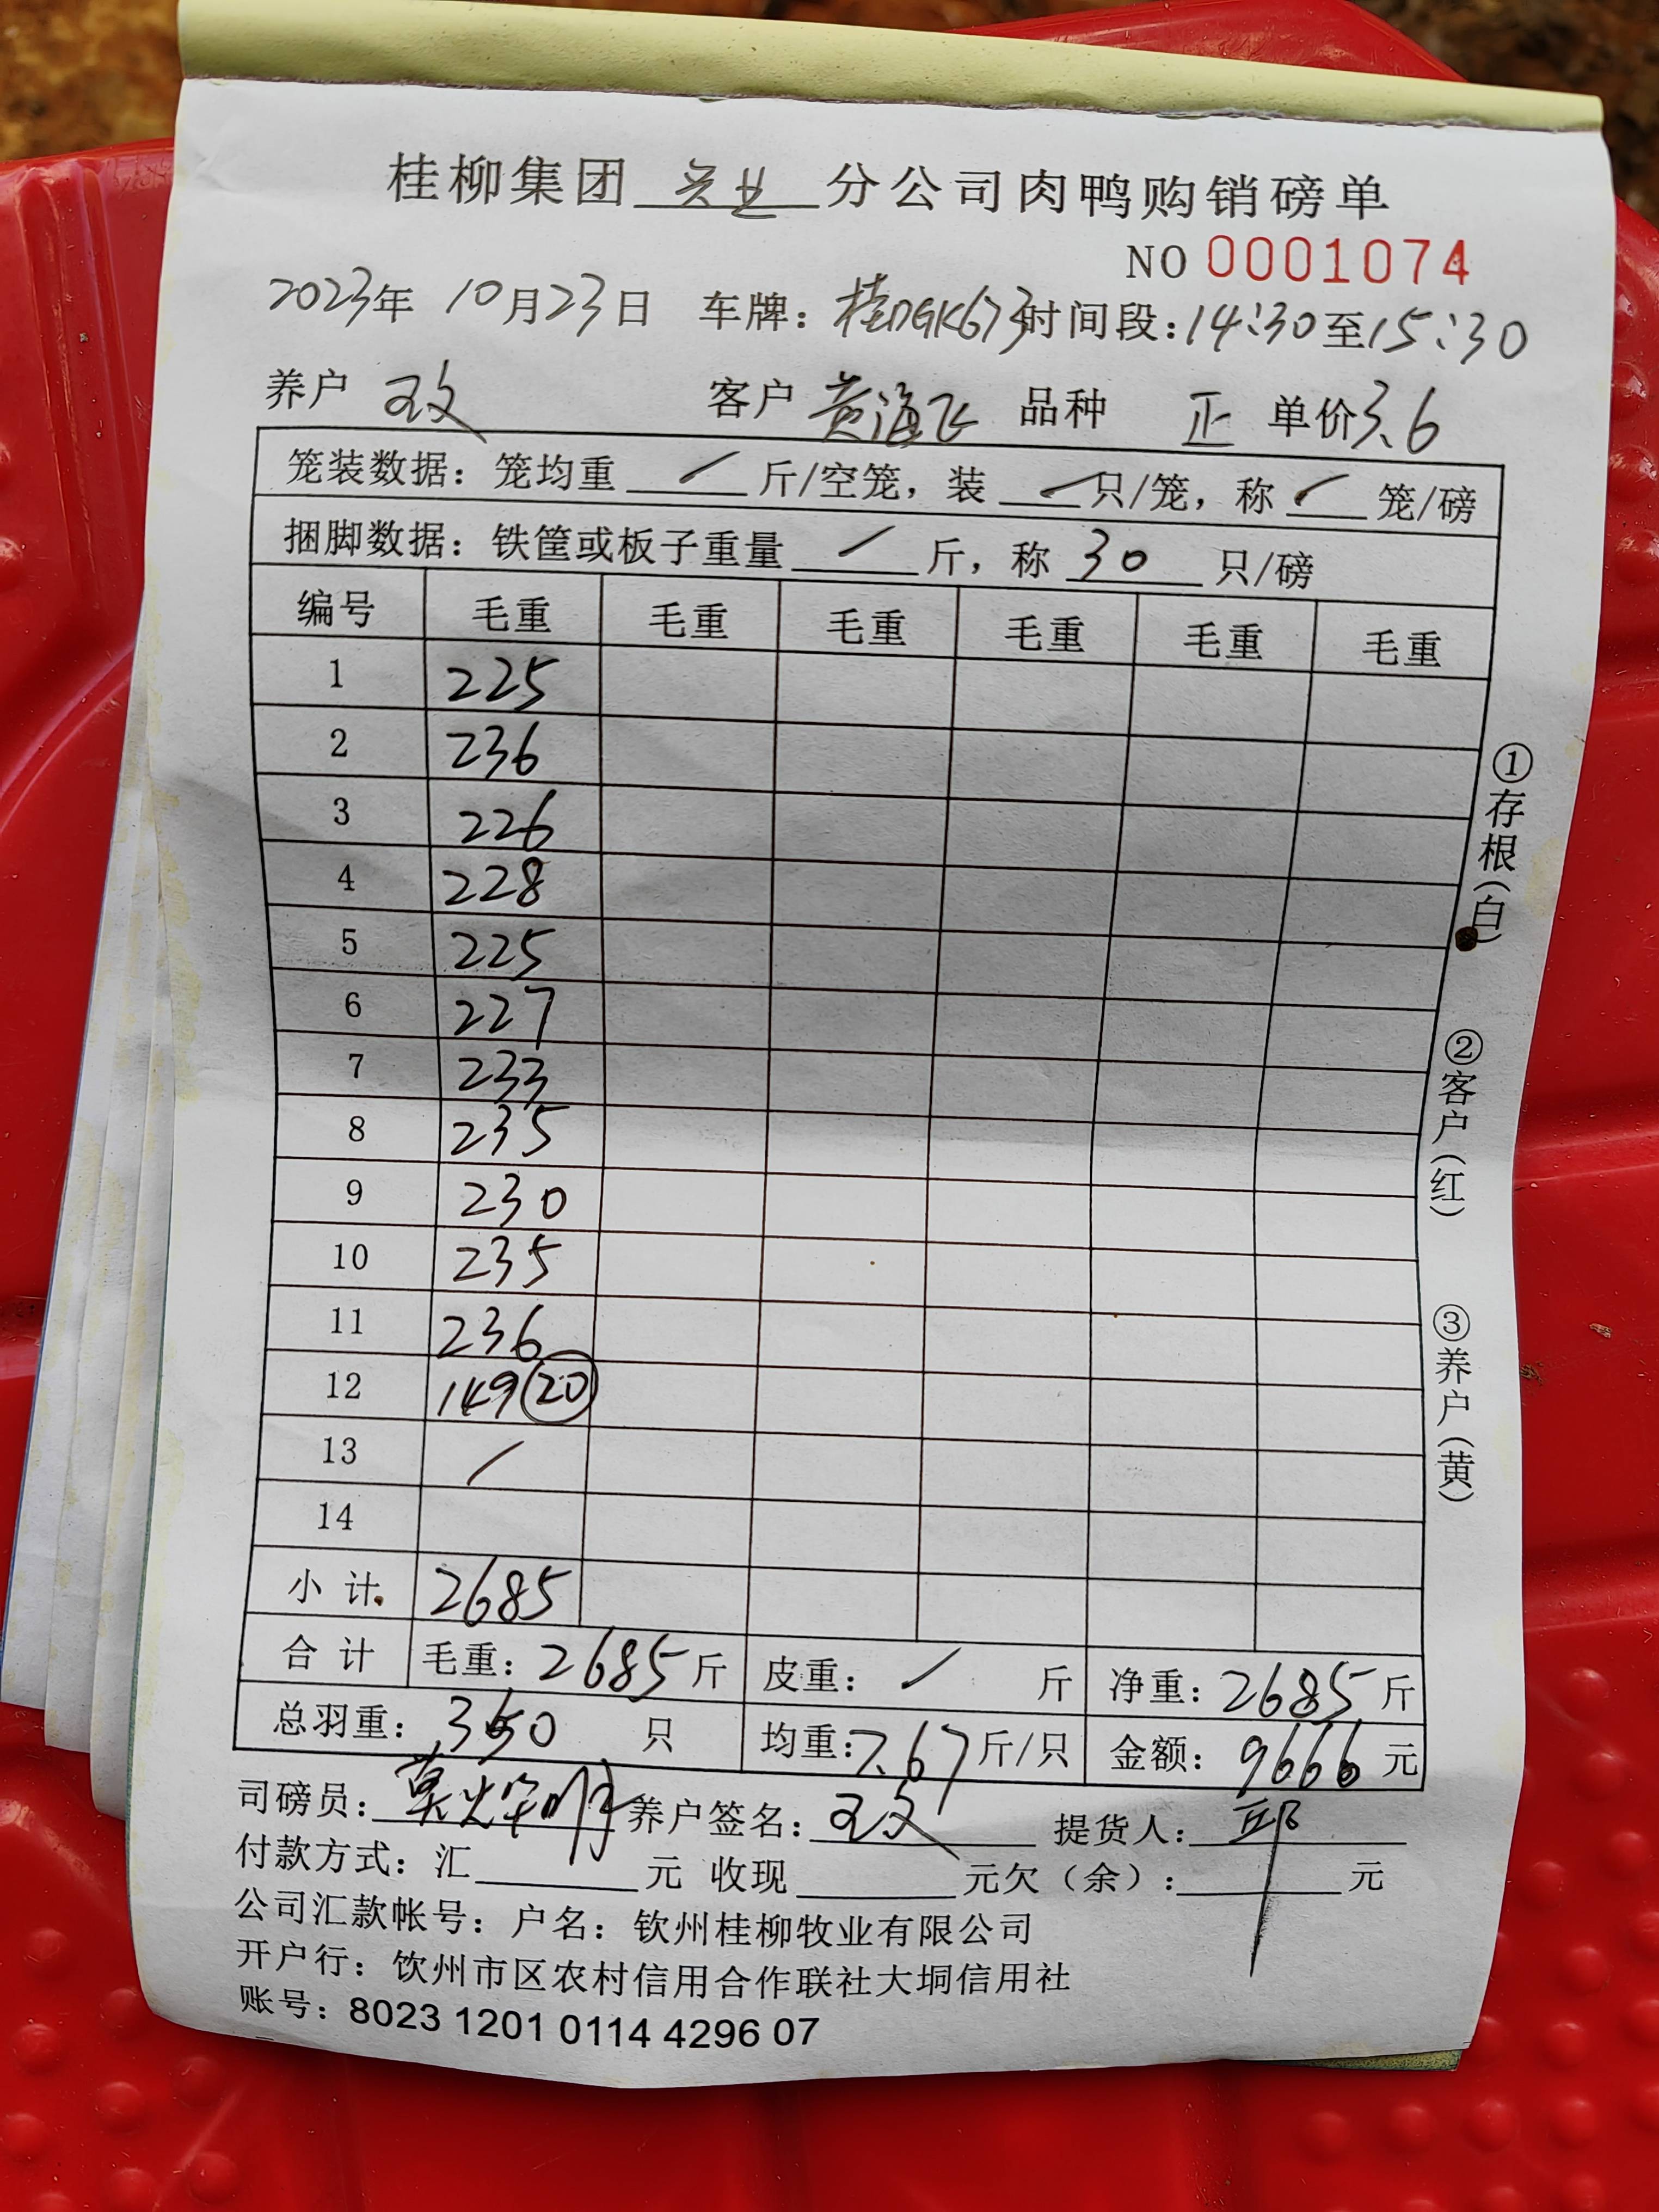 桂柳集团 兴业 分公司肉鸭购销磅单
NO 0001074
2023年 10月23日 车牌：桂DGK673 时间段：14:30至15:30
养户 客户 黄海飞 品种 正 单价3.6
笼装数据：笼均重 / 斤/空笼，装 / 只/笼，称 / 笼/磅
捆脚数据：铁筐或板子重量 / 斤，称 30 只/磅
编号 毛重 毛重 毛重 毛重 毛重 毛重
1 225
2 236
3 226
4 228
5 225
6 227
7 233
8 235
9 230
10 235
11 236
12 149 20
13 /
14
小计 2685
合计 毛重：2685斤 皮重： / 斤 净重：2685斤
总羽重：350 只 均重：7.67斤/只 金额：9666元
司磅员： 养户签名： 提货人：邱
付款方式：汇 元 收现 元欠（余）： 元
公司汇款帐号：户名：钦州桂柳牧业有限公司
开户行：钦州市区农村信用合作联社大垌信用社
账号：8023 1201 0114 4296 07
①存根（白）
②客户（红）
③养户（黄）